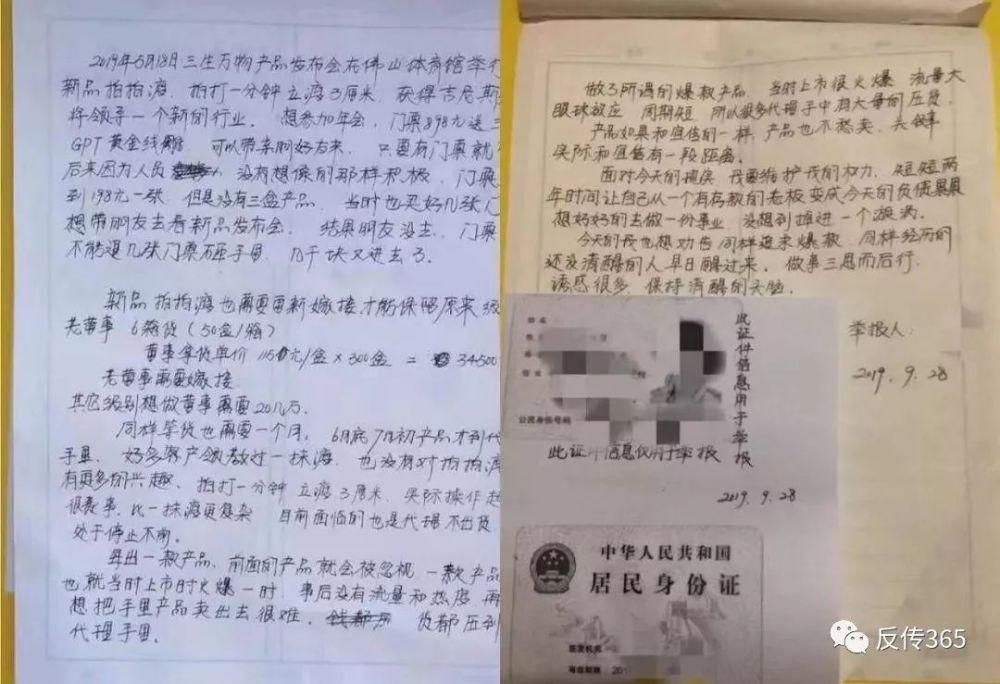 2019年5月18日三生万物产品发布会在佛山体育馆举行
新品拍拍渡，拍打一分钟立渡3厘米，获得吉尼斯
将领导一个新的行业，想参加年会，门票898元送三
GPT黄金线雕，可以带亲朋好友来，只要有门票就
后来因为人员，没有想像的那样积极，门票
到198元一张，但是没有三盒产品，当时也买好几张门
想带朋友去看新品发布会，结果朋友没去，门票
不能退几张门票砸手里，几千块又进去了。
新品拍拍渡也需要更新嫁接才能保留原来级
老董事 6箱货（50盒/箱）
董事拿货单价 115元/盒×300盒 = 34500
老董事需要嫁接
其它级别想做董事需要20几万。
同样拿货也需要一个月，6月底7月初产品才到代
手里，好多客户领教过一抹渡，也没有对拍拍渡
有更多的兴趣、拍打一分钟立渡3厘米，实际操作起
很费事，比一抹渡更复杂，目前面临的也是代理不出货
处于停止不前。
每出一款产品，前面的产品就会被忽视，一款产品
也就当时上市时火爆一时，事后没有流量和热度，再
想把手里产品卖出去很难，货都压到
代理手里。
做了所谓的爆款产品，当时上市很火爆，流量大
眼球效应，周期短，所以很多代理手中有大量的压货，
产品如果和宣传的一样，产品也不愁卖，夫做事
实际和宣传有一段距离。
面对今天的现实，我要维护我的权力，短短两
年时间让自己从一个有存款的老板变成今天的负债累累
想好好的去做一份事业，没想到掉进一个漩涡。
今天的我也想劝告同样追求爆款，同样经历的
还没清醒的人早日醒过来，做事三思而后行，
诱惑很多，保持清醒的头脑。
举报人：
2019.9.28
此证件信息用于举报
公民身份号码
此证件信息仅用于举报
2019.9.28
中华人民共和国
居民身份证
签发机关
有效期限 201
反传365